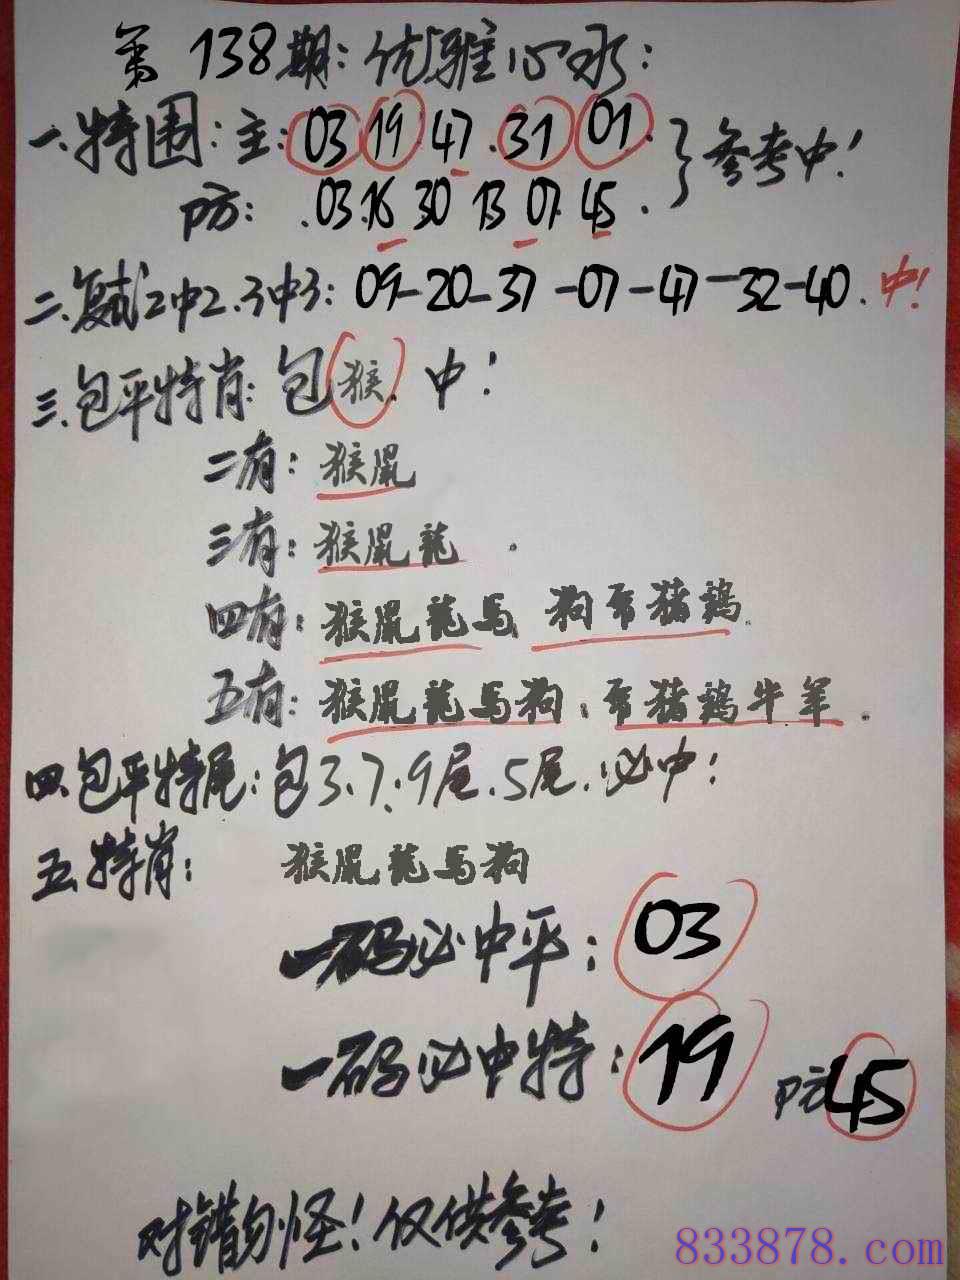 第138期:优雅心水:
一.特围:主:03 19 47.31 01.
防:.03.16 30 13 07.45.
}参考中!
二.复试2中2.3中3:09-20-37-07-47-32-40.中!
三.包平特肖:包猴.中!
二有:猴鼠
三有:猴鼠龍.
四有:猴鼠龍馬 狗虎猪鷄.
五有:猴鼠龍馬狗.虎猪鷄牛羊.
四.包平特尾:包3.7.9尾.5尾.必中!
五.特肖:猴鼠龍馬狗
一码必中平:03
一码必中特:19 防45
对错勿怪!仅供参考!
833878.com